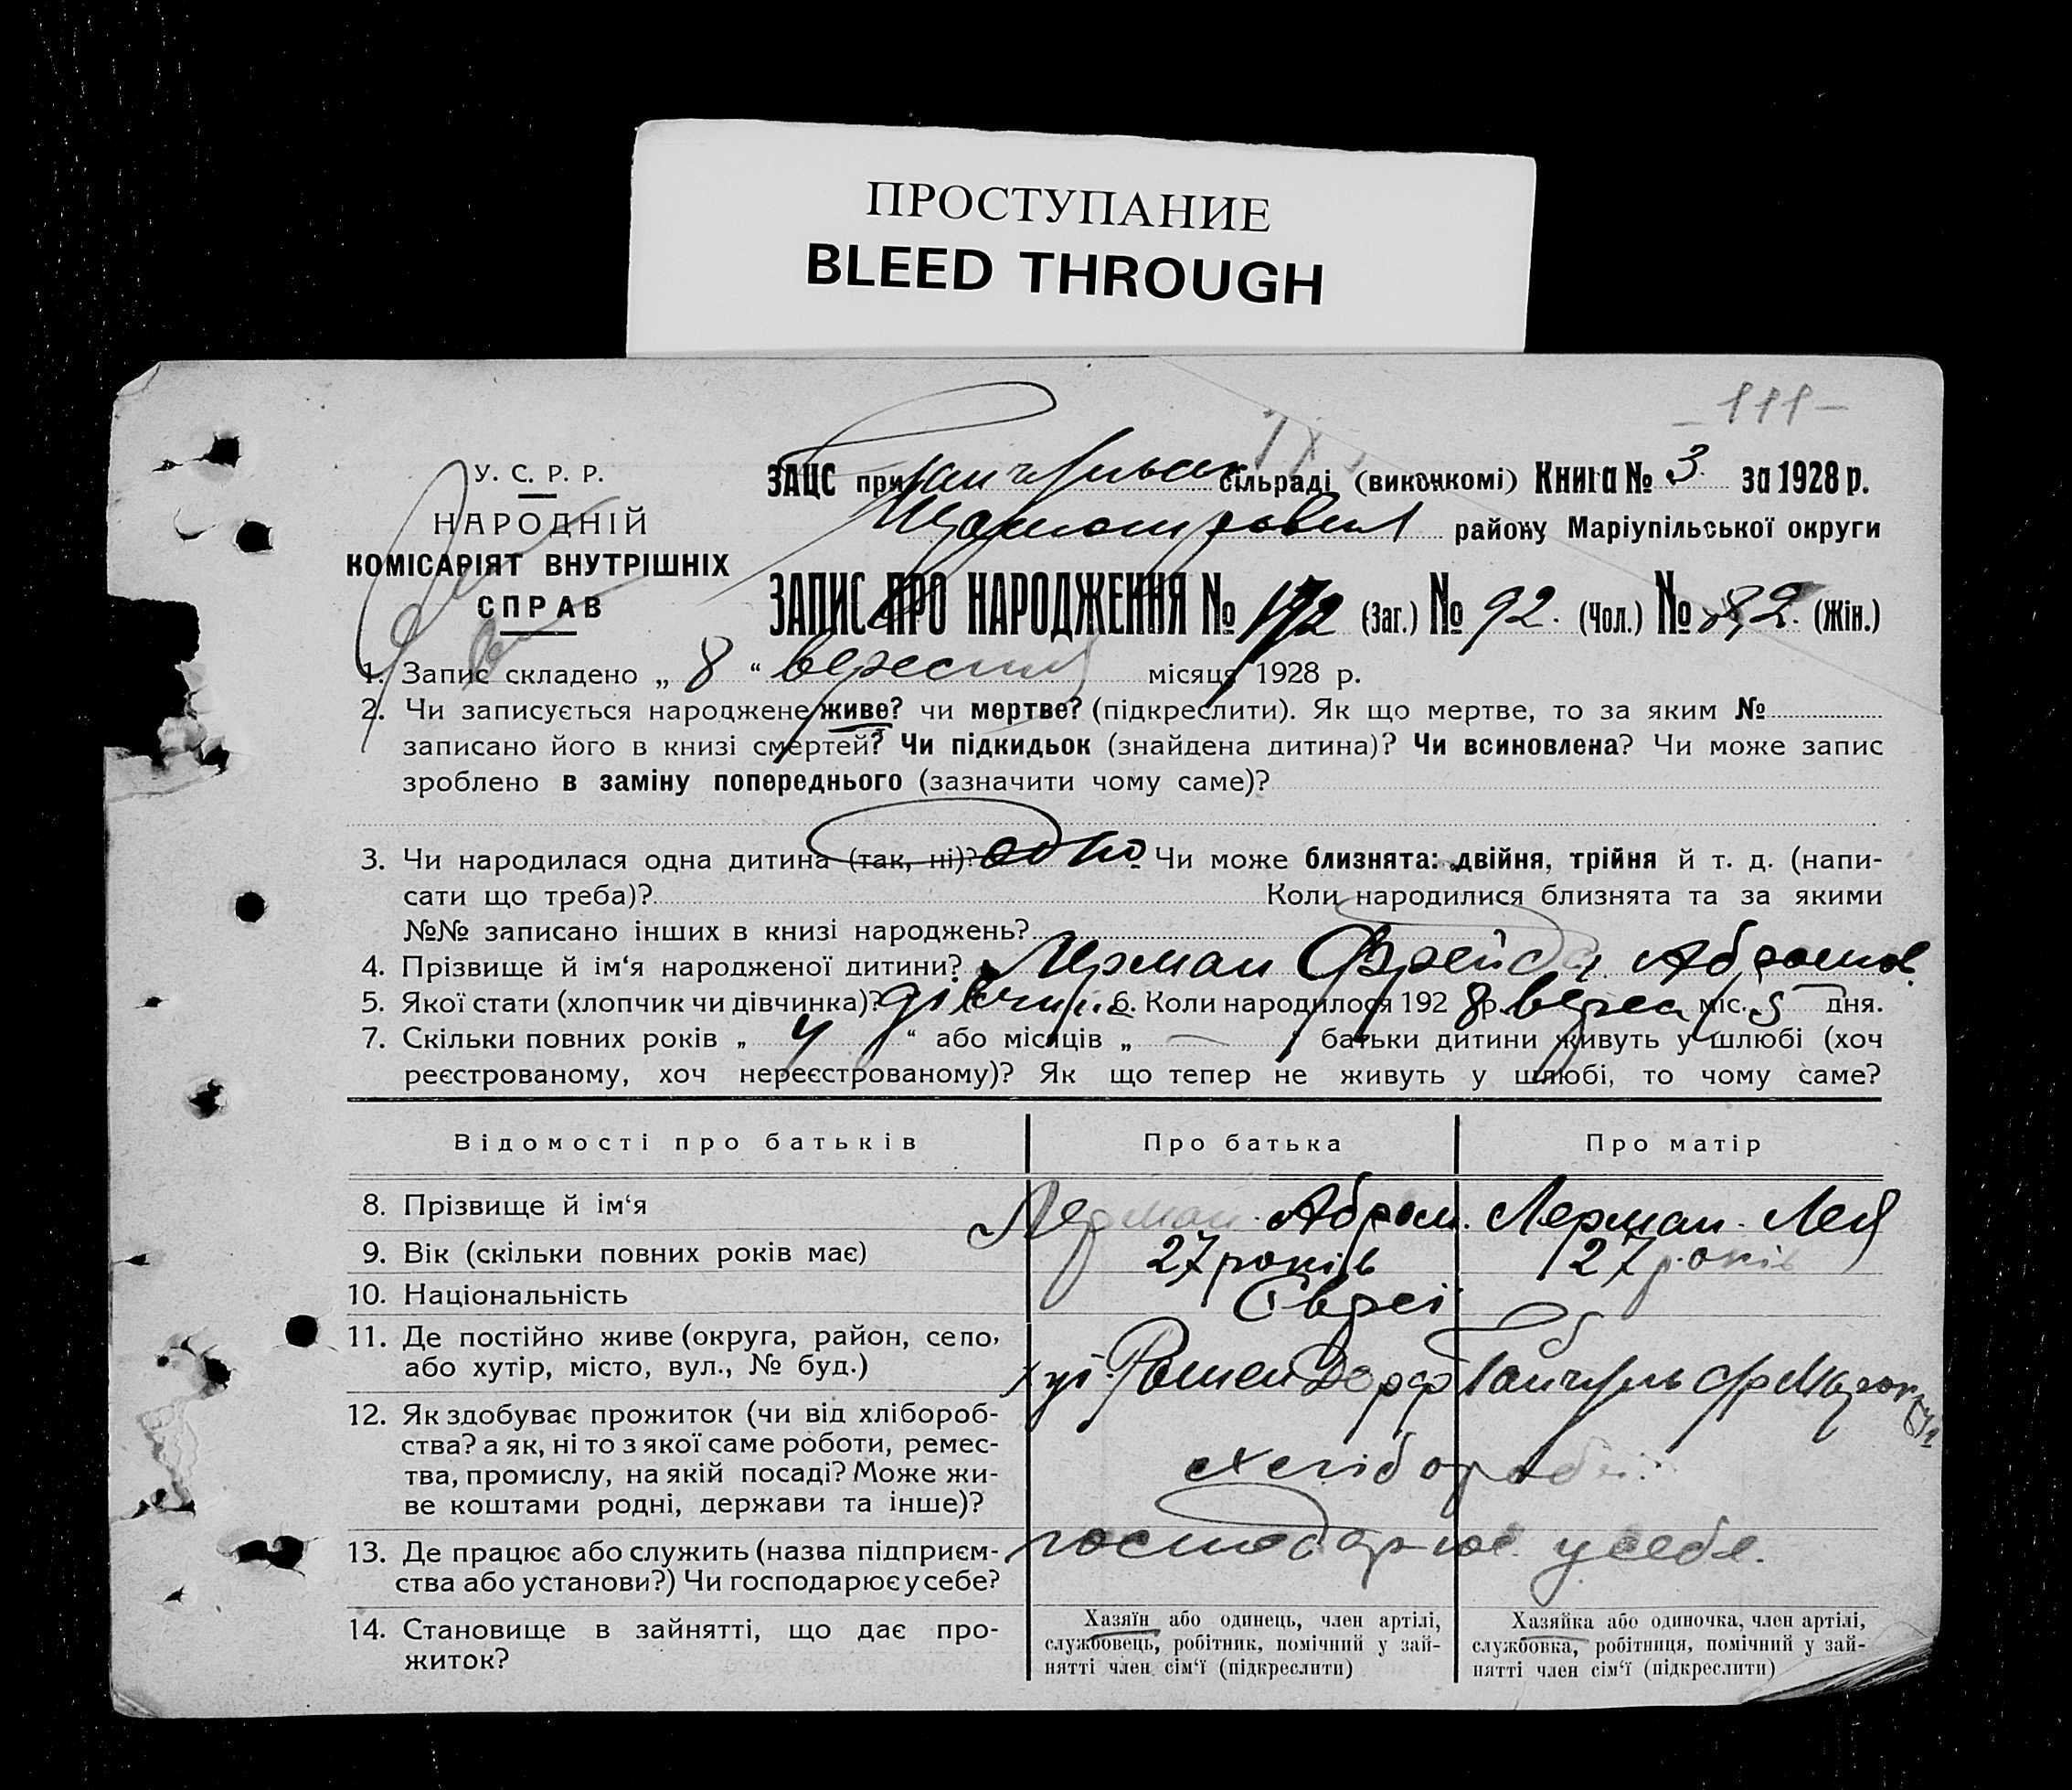 ПРОСТУПАНИЕ
BLEED THROUGH
111-
У. С. Р. Р.
НАРОДНІЙ
КОМІСАРІЯТ ВНУТРІШНІХ
СПРАВ
ЗАЦС при сільраді (виконкомі) Книга № 3. за 1928 р.
району Маріупільської округи
ЗАПИС ПРО НАРОДЖЕННЯ № 172 (Заг.) № 92. (Чол.) № 82. (Жін.)
1. Запис складено „ 8 “ вересня місяця 1928 р.
2. Чи записується народжене живе? чи мертве? (підкреслити). Як що мертве, то за яким №
записано його в книзі смертей? Чи підкидьок (знайдена дитина)? Чи всиновлена? Чи може запис
зроблено в заміну попереднього (зазначити чому саме)?
3. Чи народилася одна дитина (так, ні)? одно. Чи може близнята: двійня, трійня й т. д. (напи-
сати що треба)? Коли народилися близнята та за якими
№№ записано інших в книзі народжень?
4. Прізвище й ім‘я народженої дитини? Лерман Фрейда Абрамов.
5. Якої стати (хлопчик чи дівчинка)? дівчина 6. Коли народилося 192 8 р. верес міс. 5 дня.
7. Скільки повних років „ 4 “ або місяців „ — “ батьки дитини живуть у шлюбі (хоч
реєстрованому, хоч нереєстрованому)? Як що тепер не живуть у шлюбі, то чому саме?
Відомості про батьків Про батька Про матір
8. Прізвище й ім‘я Лерман Абрам. Лерман Лея
9. Вік (скільки повних років має) 27 років 27 років
10. Національність Євреї
11. Де постійно живе (округа, район, село,
або хутір, місто, вул., № буд.)
12. Як здобуває прожиток (чи від хлібороб-
ства? а як, ні то з якої саме роботи, ремес-
тва, промислу, на якій посаді? Може жи-
ве коштами родні, держави та інше)?
хлібороби
13. Де працює або служить (назва підприєм-
ства або установи?) Чи господарює у себе?
господарює у себе.
14. Становище в зайнятті, що дає про-
житок?
Хазяїн або одинець, член артілі,
службовець, робітник, помічний у зай-
нятті член сім‘ї (підкреслити)
Хазяйка або одиночка, член артілі,
службовка, робітниця, помічний у зай-
нятті член сім‘ї (підкреслити)